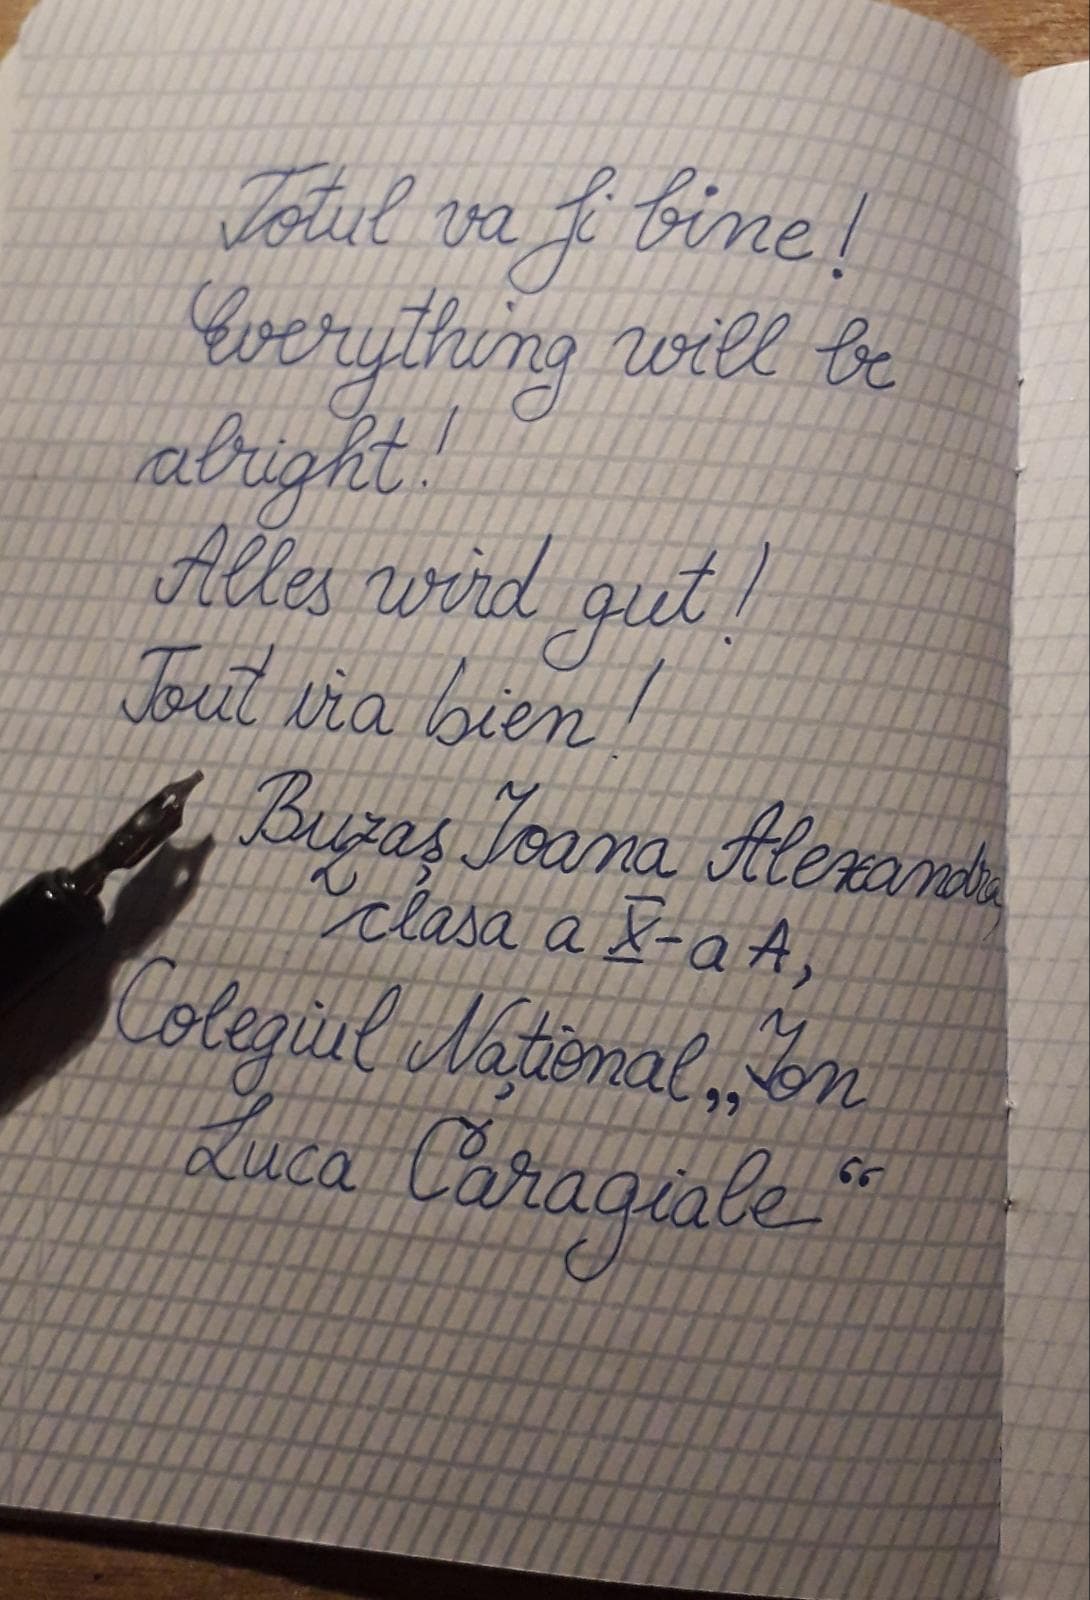 Totul va fi bine!
Everything will be
alright!
Alles wird gut!
Tout ira bien!
Buzaș Ioana Alexandra,
clasa a X-a A,
Colegiul Național „Ion
Luca Caragiale“